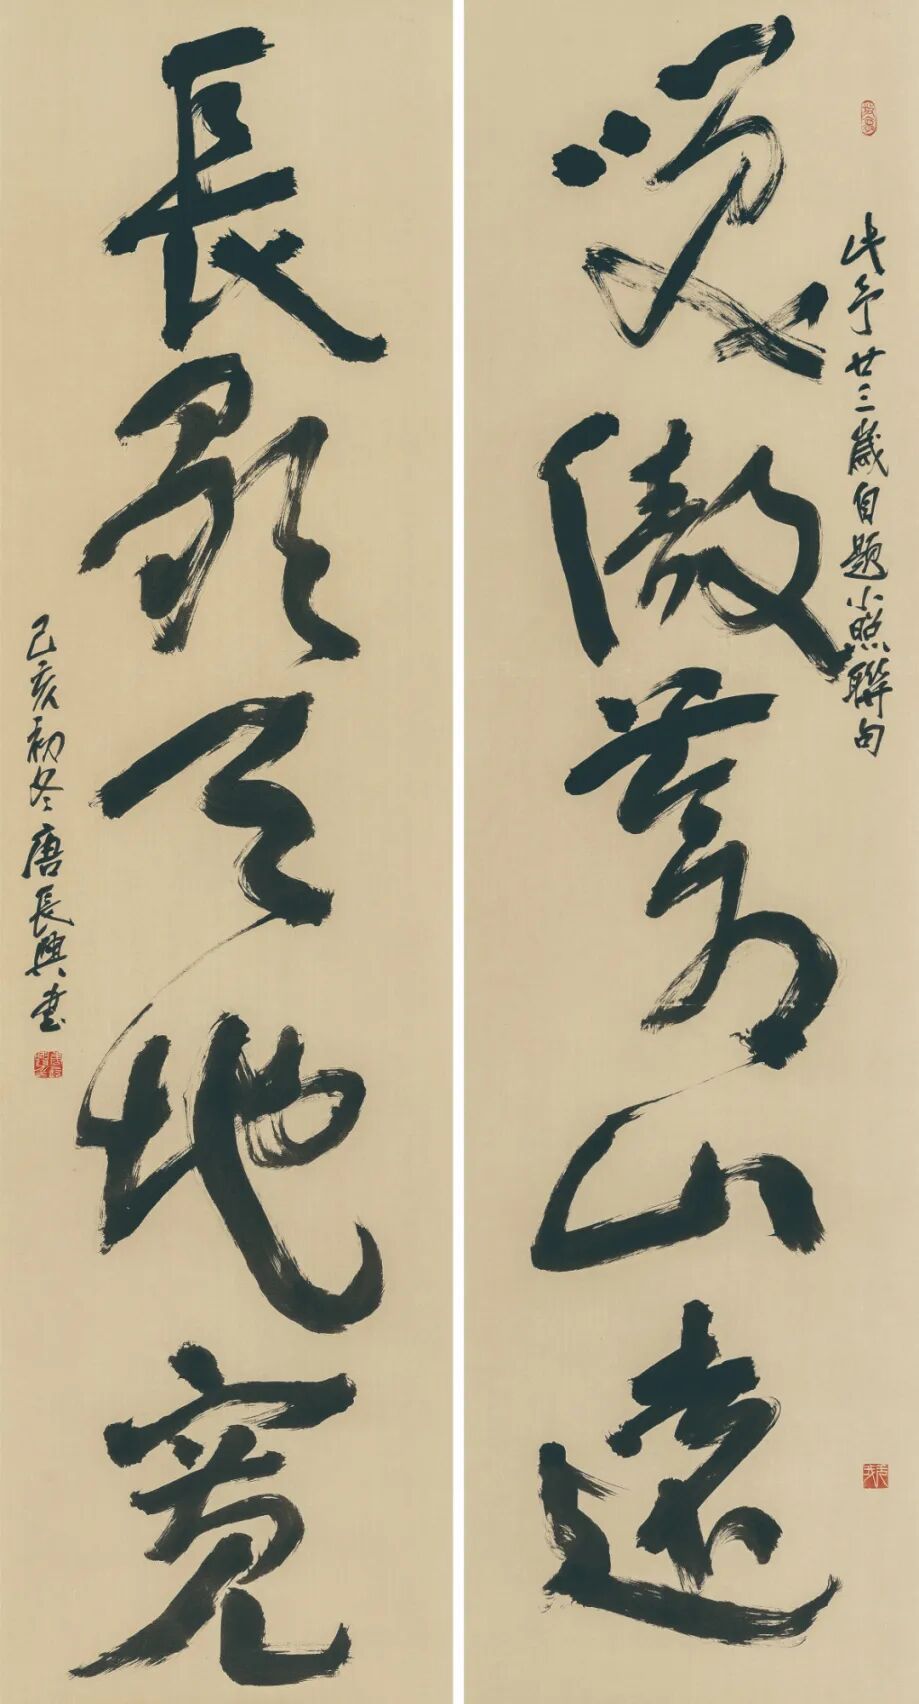 此予廿三歲自題小照聯句
笑傲萬山遠
長歌天地寬
己亥初冬唐長興書